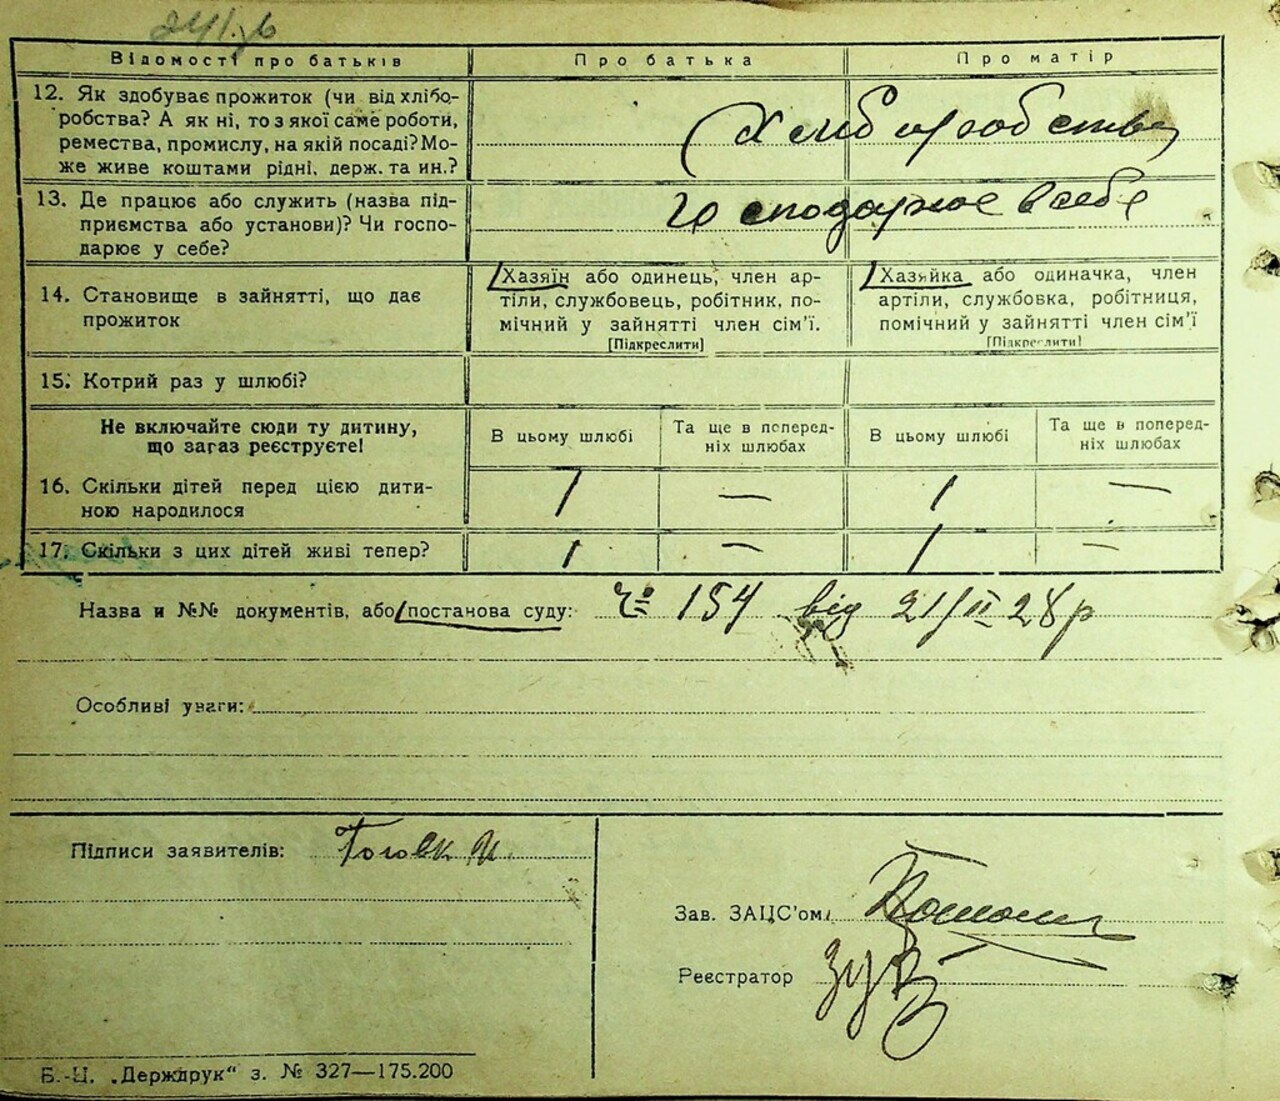 Відомості про батьків
Про батька
Про матір
12. Як здобуває прожиток (чи від хлібо-
робства? А як ні, то з якої саме роботи,
ремества, промислу, на якій посаді? Мо-
же живе коштами рідні, держ. та ин.?
Хліборобство
13. Де працює або служить (назва під-
приємства або установи)? Чи госпо-
дарює у себе?
господарює в себе
14. Становище в зайнятті, що дає
прожиток
Хазяїн або одинець, член ар-
тіли, службовець, робітник, по-
мічний у зайнятті член сім'ї.
[Підкреслити]
Хазяйка або одиначка, член
артіли, службовка, робітниця,
помічний у зайнятті член сім'ї
[Підкреслити]
15. Котрий раз у шлюбі?
Не включайте сюди ту дитину,
що загаз реєструєте!
В цьому шлюбі
Та ще в поперед-
ніх шлюбах
В цьому шлюбі
Та ще в поперед-
ніх шлюбах
16. Скільки дітей перед цією дити-
ною народилося
1 — 1 —
17. Скільки з цих дітей живі тепер?
1 — 1 —
Назва и №№ документів, або постанова суду: 154 від 21/II 28 р
Особливі уваги:
Підписи заявителів:
Зав. ЗАЦС'ом
Реєстратор
Б.-Ц. „Держдрук" з. № 327—175.200